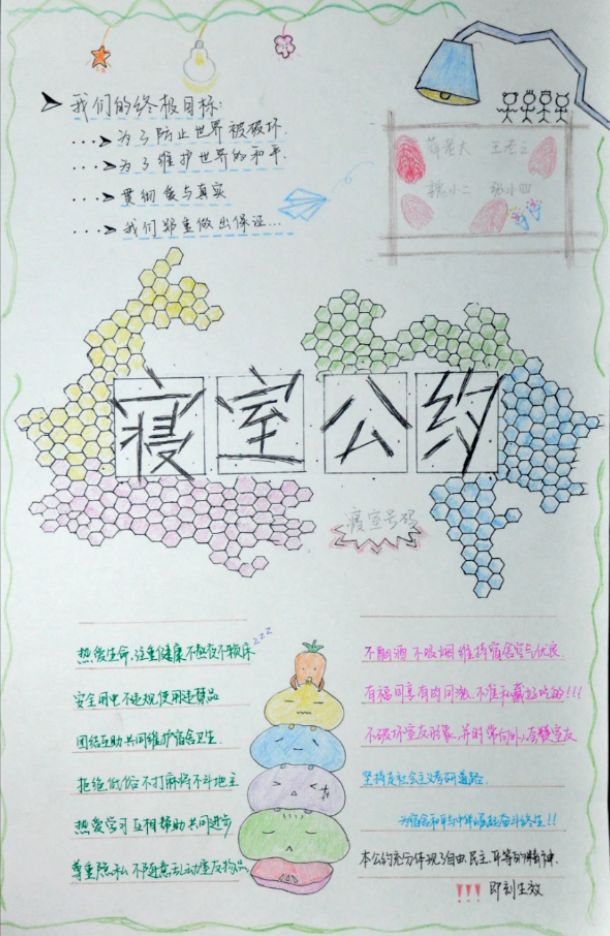 我们的终极目标:
为了防止世界被破坏.
为了维护世界的和平.
贯彻爱与真实
我们郑重做出保证...
老大 王老三
小二 张小四
寝室公约
寝室号码
热爱生命.注重健康不熬夜不赖床zzz
安全用电不违规使用违禁品
团结互助共同维护宿舍卫生.
拒绝低俗不打麻将不斗地主
热爱学习互相帮助共同进步
尊重隐私不随意乱动室友物品.
不酗酒不吸烟维持宿舍空气优良.
有福同享有肉同吃,不准私藏好吃的!!!
不破坏室友形象,并时常向外夸赞室友
坚持走社会主义考研道路.
为宿舍和平与 奋斗终生!!
本公约充分体现了自由,民主,平等的精神.
!!! 即刻生效